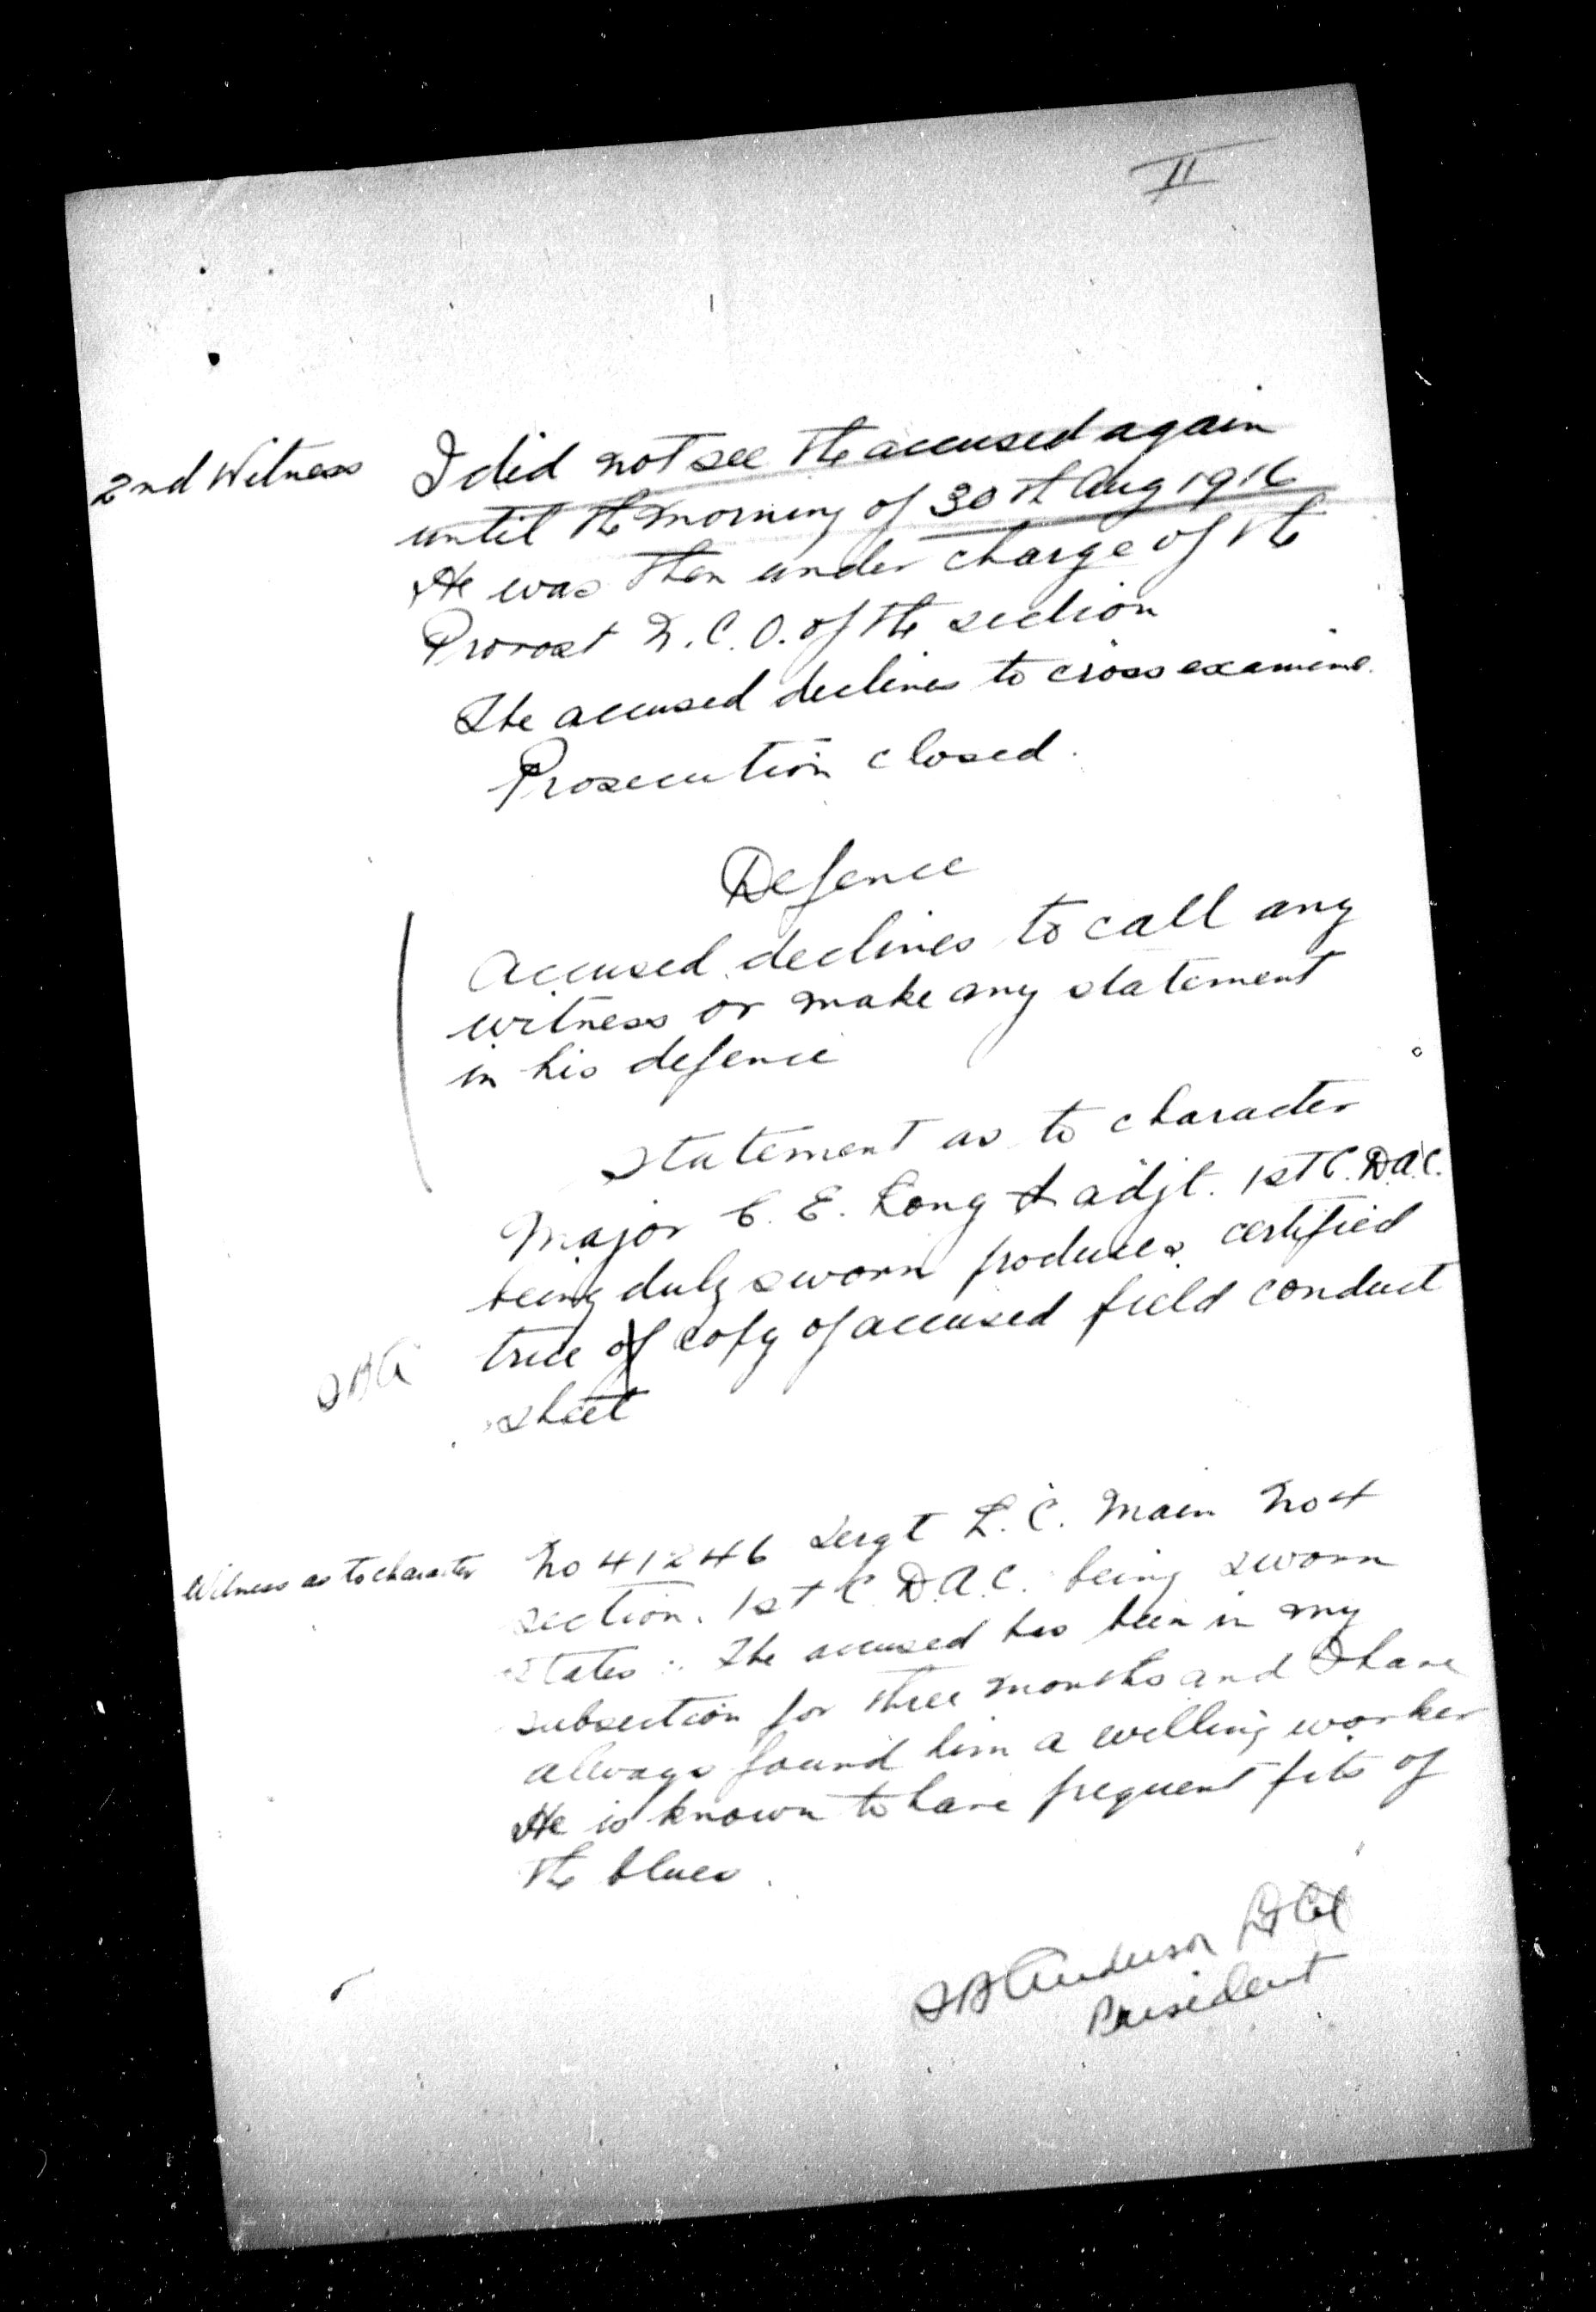 II
2nd Witness I did not see the accused again
until the morning of 30th Aug 1916
He was then under charge of the
Provost N.C.O. of the section
The accused declines to cross examine.
Prosecution closed.
Defence
Accused declines to call any
witness or make any statement
in his defence
Statement as to character
Major C. E. Long adjt. 1st C.D.A.C.
being duly sworn produces certified
SBA true of copy of accused field conduct
sheet
Witness as to character No 41246 Sergt L. C. Main No 4
section. 1st C.D.A.C. being sworn
states :. The accused has been in my
subsection for three months and I have
always found him a willing worker
He is known to have frequent fits of
the blues.
SB Anderson Lt Col
President